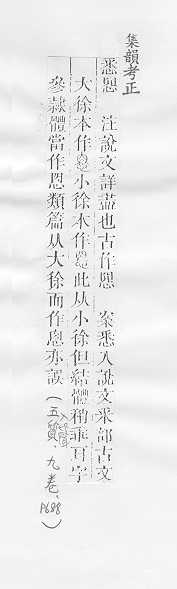 集韻考正
悉恖 注說文詳盡也古作恖 案悉入說文釆部古文
大徐本作 小徐本作 此从小徐但結體稍乖耳字
參隸體當作恖類篇从大徐而作恖亦誤(五質、九卷、P688)